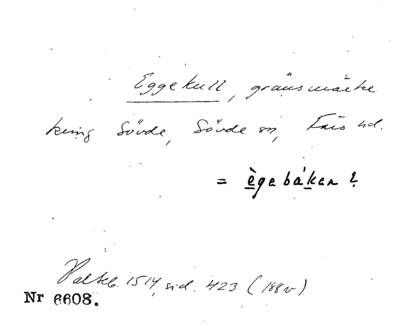 Eggekull, gränsmärke
kring Sövde, Sövde sn, Färs hd.
= ègebákən ?
Palteb. 1514, sid. 423 (188v).
Nr 6608.